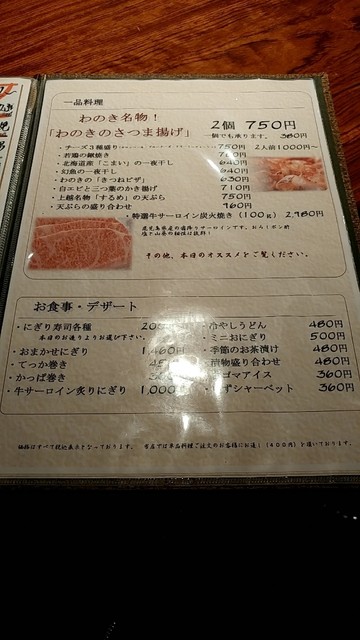 一品料理
わのき名物！
「わのきのさつま揚げ」 2個 750円
一個でも承ります。 380円
・チーズ3種盛り 750円 2人前1000円～
・若鶏の鍬焼き
・北海道産「こまい」の一夜干し 640円
・幻魚の一夜干し 640円
・わのきの「きつねピザ」 630円
・白エビと三つ葉のかき揚げ 710円
・上越名物「するめ」の天ぷら 750円
・天ぷらの盛り合わせ 960円
・特選牛サーロイン炭火焼き（100g） 2,980円
その他、本日のオススメをご覧ください。
お食事・デザート
・にぎり寿司各種
本日のお造りよりお選び下さい。
・おまかせにぎり 1,460円
・てっか巻き
・かっぱ巻き
・牛サーロイン炙りにぎり 1,000
・冷やしうどん 480円
・ミニおにぎり 500円
・季節のお茶漬け 480円
漬物盛り合わせ 480円
ゴマアイス 360円
ずシャーベット 360円
価格はすべて税込表示となっております。 当店では単品料理ご注文のお客様にお通し（400円）を頂いております。